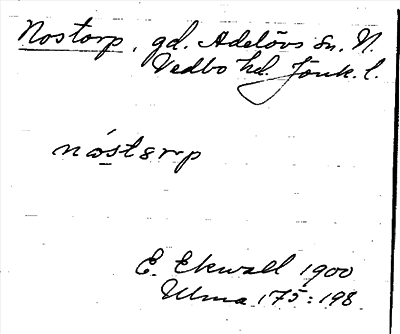 Nostorp, gd. Adelövs sn. N.
Vedbo hd. Jönk. l.
nåstərp
E. Ekwall 1900
Ulma 175:198